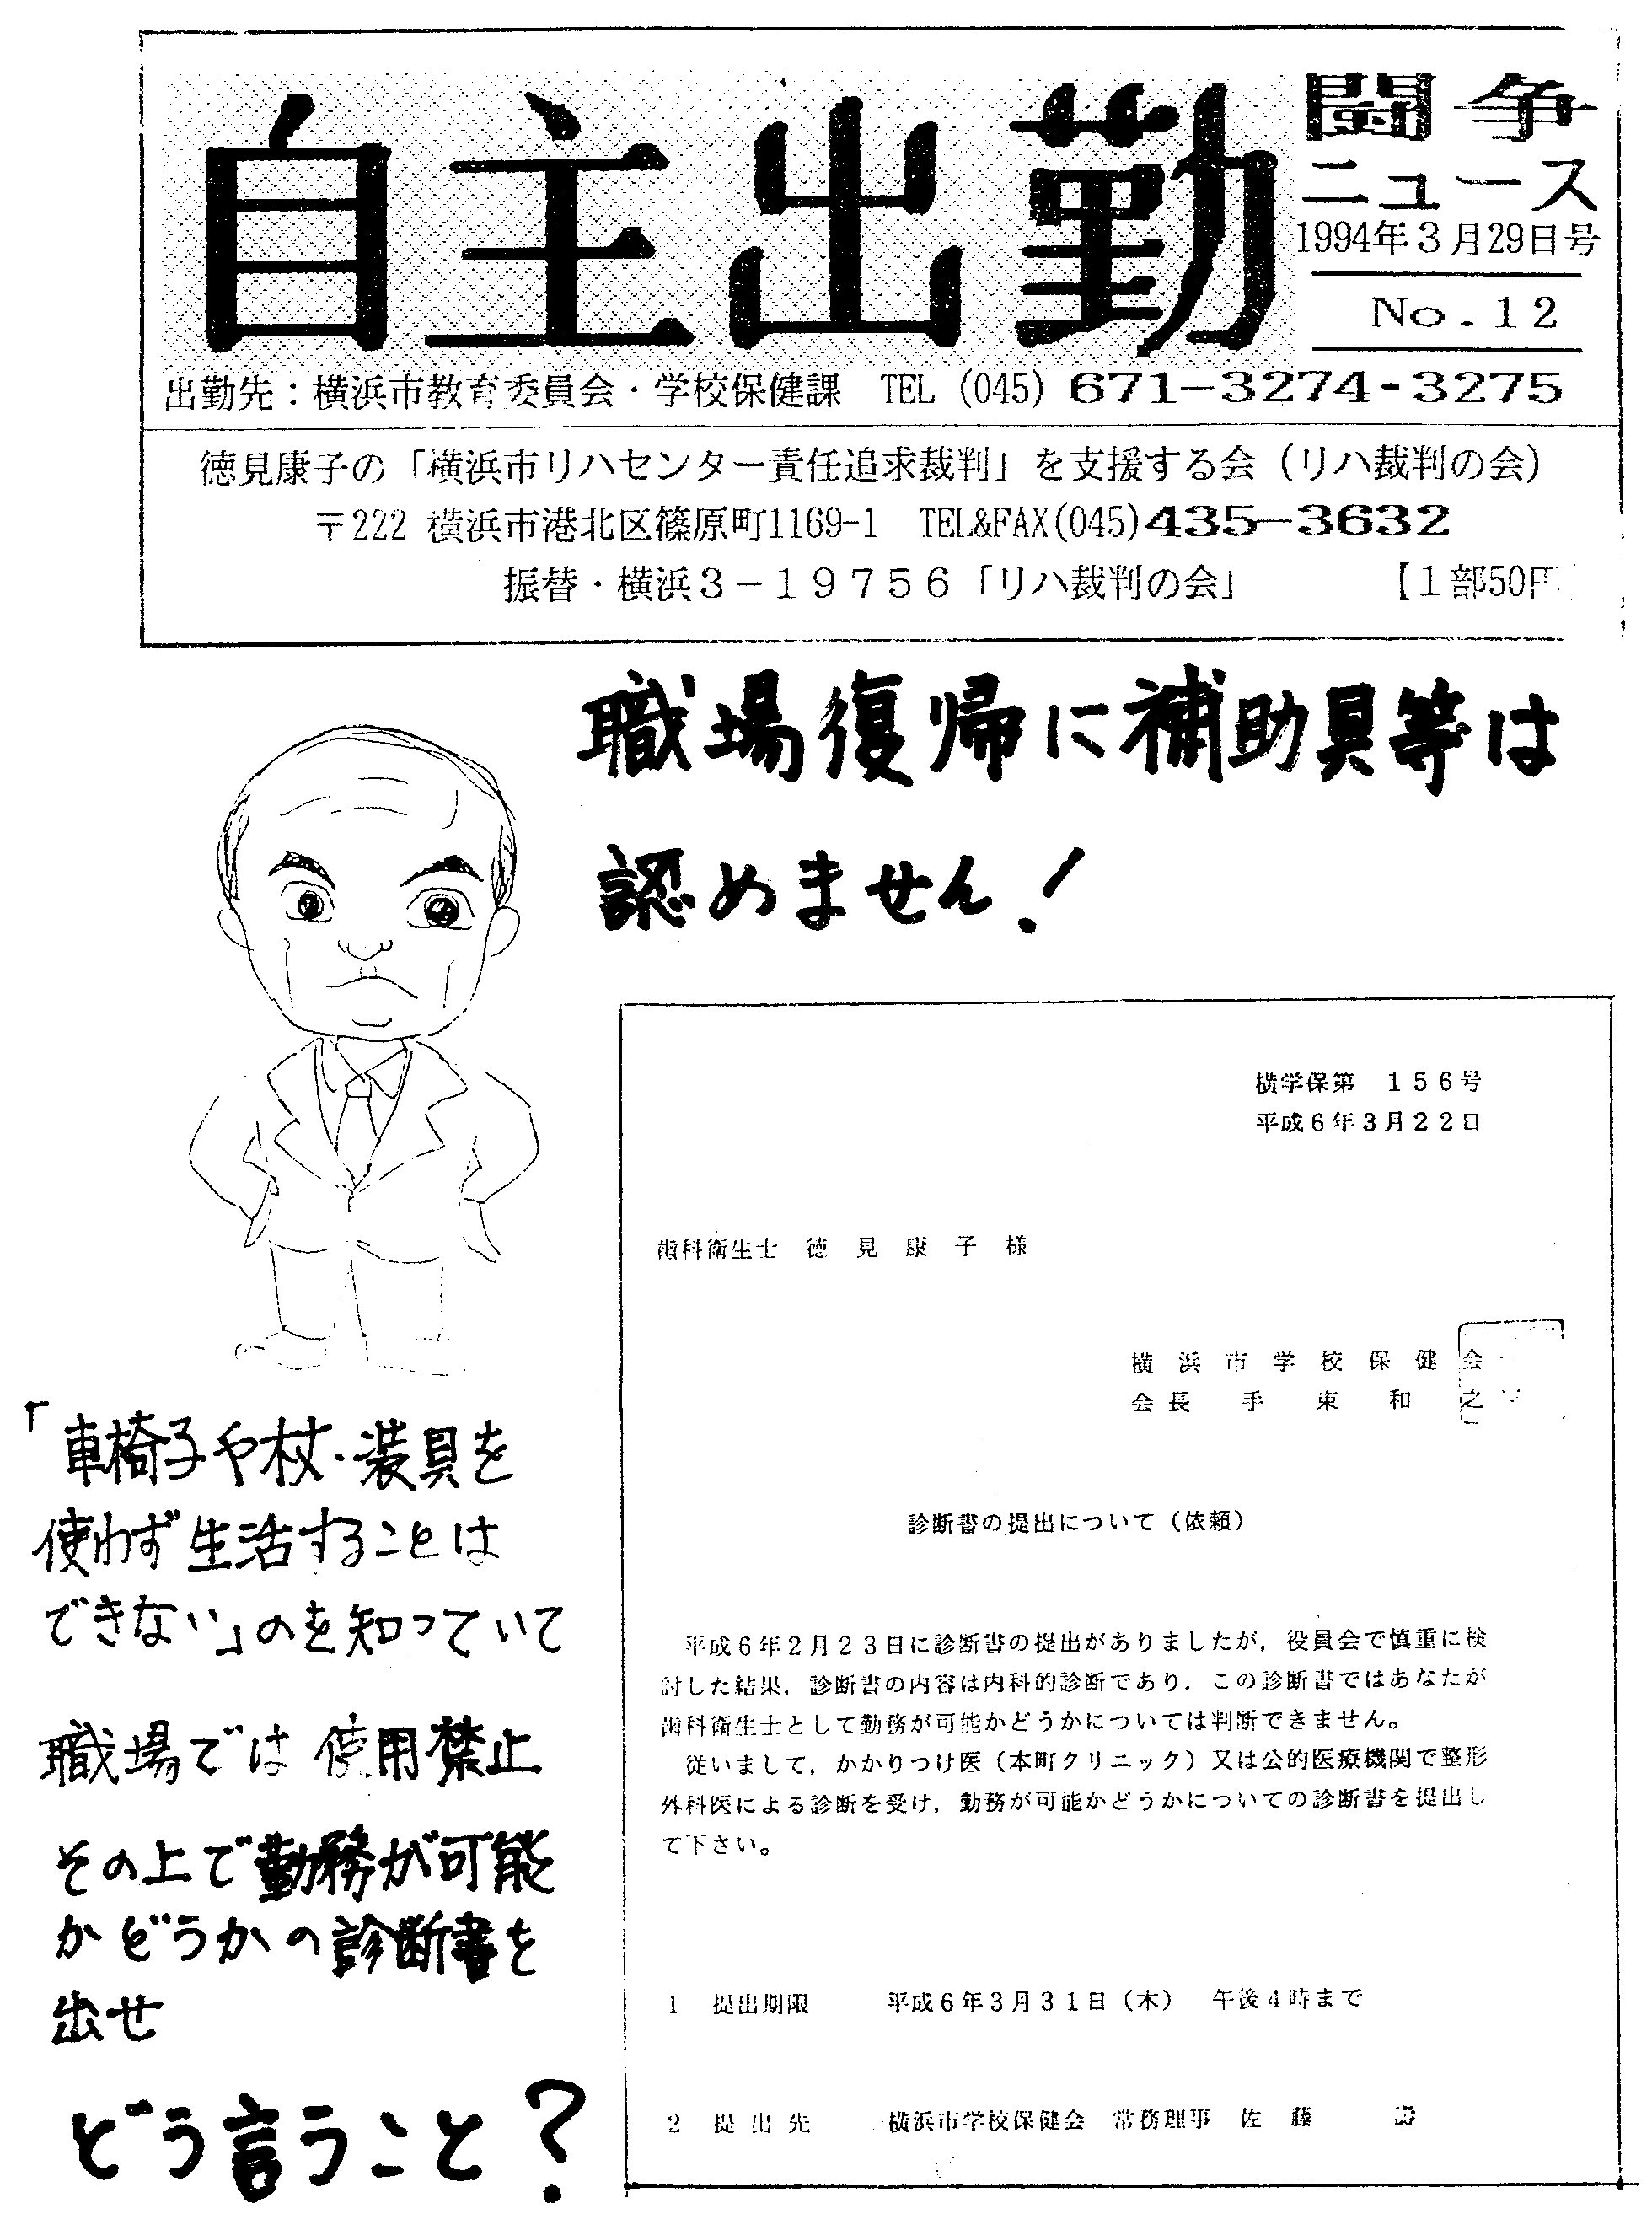 自主出勤
闘争
ニュース
1994年3月29日号
No.12
出勤先：横浜市教育委員会・学校保健課　TEL (045) 671-3274・3275
徳見康子の「横浜市リハセンター責任追求裁判」を支援する会（リハ裁判の会）
〒222 横浜市港北区篠原町1169-1　TEL&FAX(045)435-3632
振替・横浜3－19756「リハ裁判の会」　【1部50円
職場復帰に補助具等は
認めません！
「車椅子や杖・装具を
使わず生活することは
できない」のを知っていて
職場では使用禁止
その上で勤務が可能
かどうかの診断書を
出せ
どう言うこと？
横学保第　156号
平成6年3月22日
歯科衛生士　徳見康子様
横浜市学校保健会
会長　手束和之
診断書の提出について（依頼）
平成6年2月23日に診断書の提出がありましたが，役員会で慎重に検
討した結果，診断書の内容は内科的診断であり，この診断書ではあなたが
歯科衛生士として勤務が可能かどうかについては判断できません。
従いまして，かかりつけ医（本町クリニック）又は公的医療機関で整形
外科医による診断を受け，勤務が可能かどうかについての診断書を提出し
て下さい。
1　提出期限　平成6年3月31日（木）　午後4時まで
2　提出先　横浜市学校保健会　常務理事　佐藤